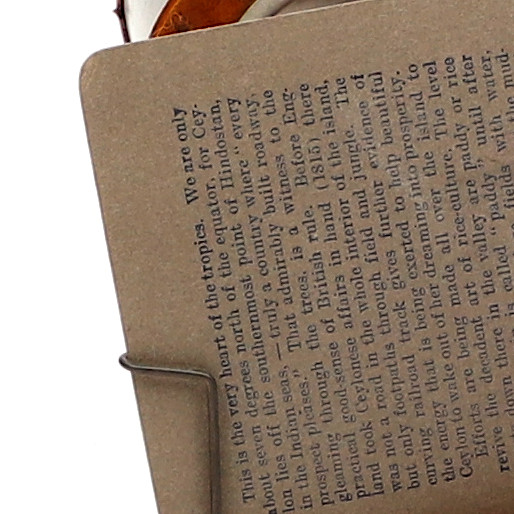 This is the very heart of the tropics. We are only
about seven degrees north of the equator, for Cey-
lon lies off the southernmost point of Hindostan,
in the Indian seas,—truly a country where "every
prospect pleases." That admirably built roadway,
gleaming through the trees, is a witness to the
practical good-sense of British rule. Before Eng-
land took Ceylonese affairs in hand (1815) there
was not a road in the whole interior of the island,
but only footpaths through field and jungle. The
curving railroad track gives further evidence of
the energy that is being exerted to help beautiful
Ceylon to wake out of her dreaming into prosperity.
Efforts are being made all over the island to
revive the decadent art of rice-culture. The level
down there in the valley are paddy or rice
is called "paddy" until after
fields with water,
the mud-